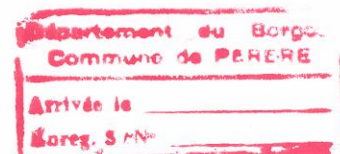 Département du Borgou
Commune de PERERE
Arrivée le
Enreg. S/N°